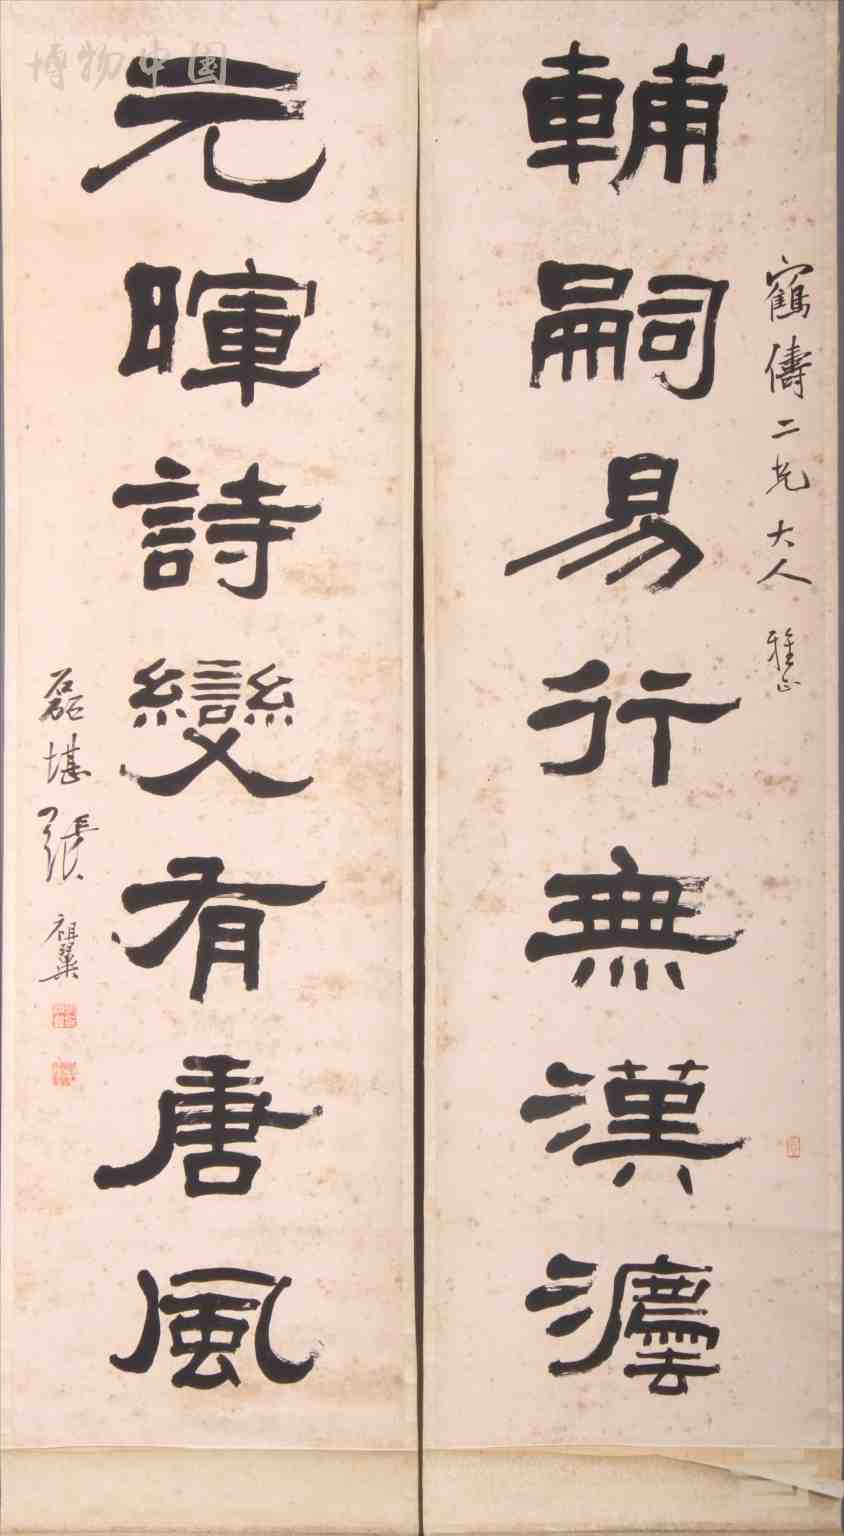 鶴儔二兄大人雅正
輔嗣易行無漢灋
元暉詩變有唐風
磊堪張祖翼
博物中国